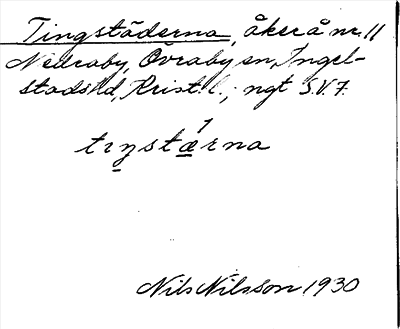 Tingstäderna, åker å nr. 11
Nedraby, Övraby sn, Ingel-
stads hd, Krist. l.; ngt S.V.F.
tiŋstǽrna
Nils Nilsson 1930